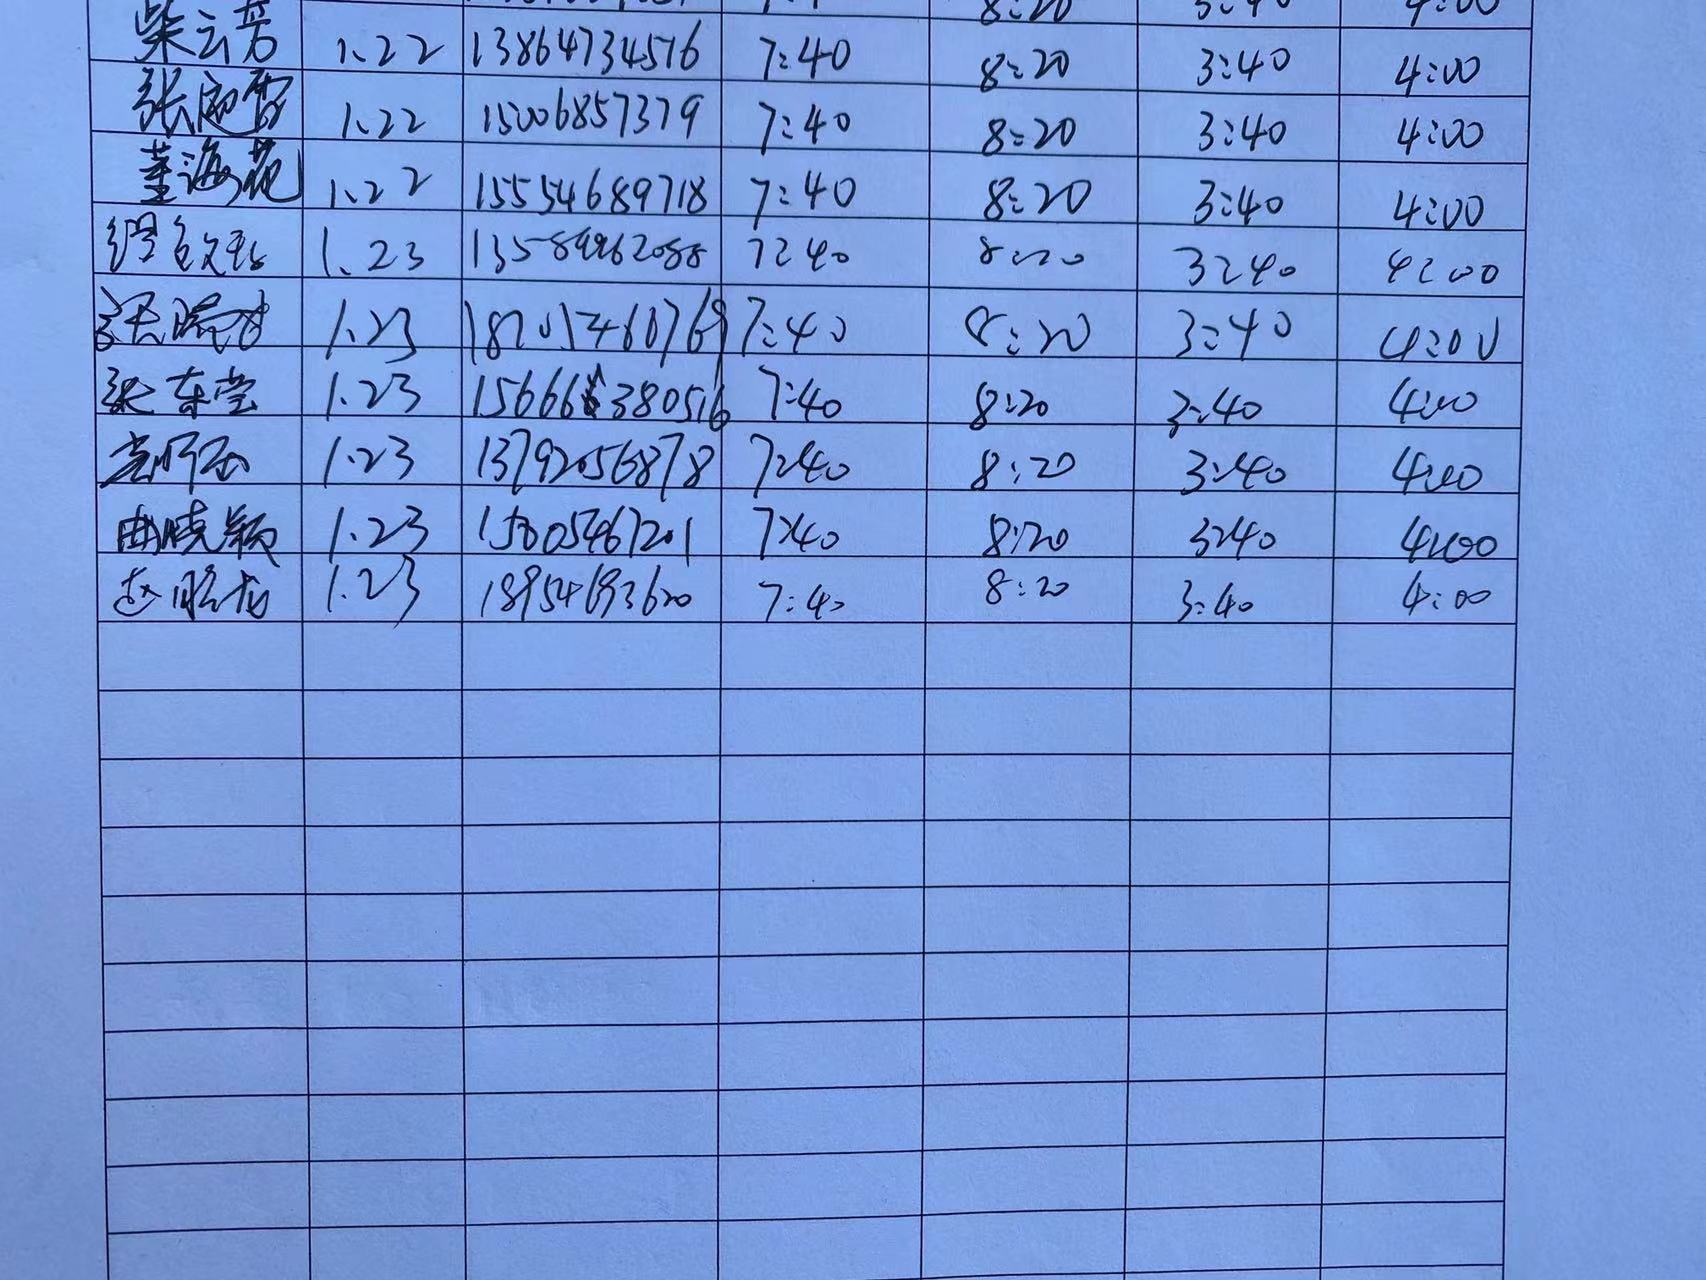 8:20 3:40 4:00
柴云芳 1.22 13864734576 7:40 8:20 3:40 4:00
张迎雪 1.22 15006857379 7:40 8:20 3:40 4:00
董海苑 1.22 15554689718 7:40 8:20 3:40 4:00
1.23 7:40 8:20 3:40 4:00
1.23 7:40 8:20 3:40 4:00
张东莹 1.23 7:40 8:20 3:40 4:00
1.23 13792056878 7:40 8:20 3:40 4:00
曲晓颖 1.23 15005467201 7:40 8:20 3:40 4:00
赵 1.23 18954693620 7:40 8:20 3:40 4:00